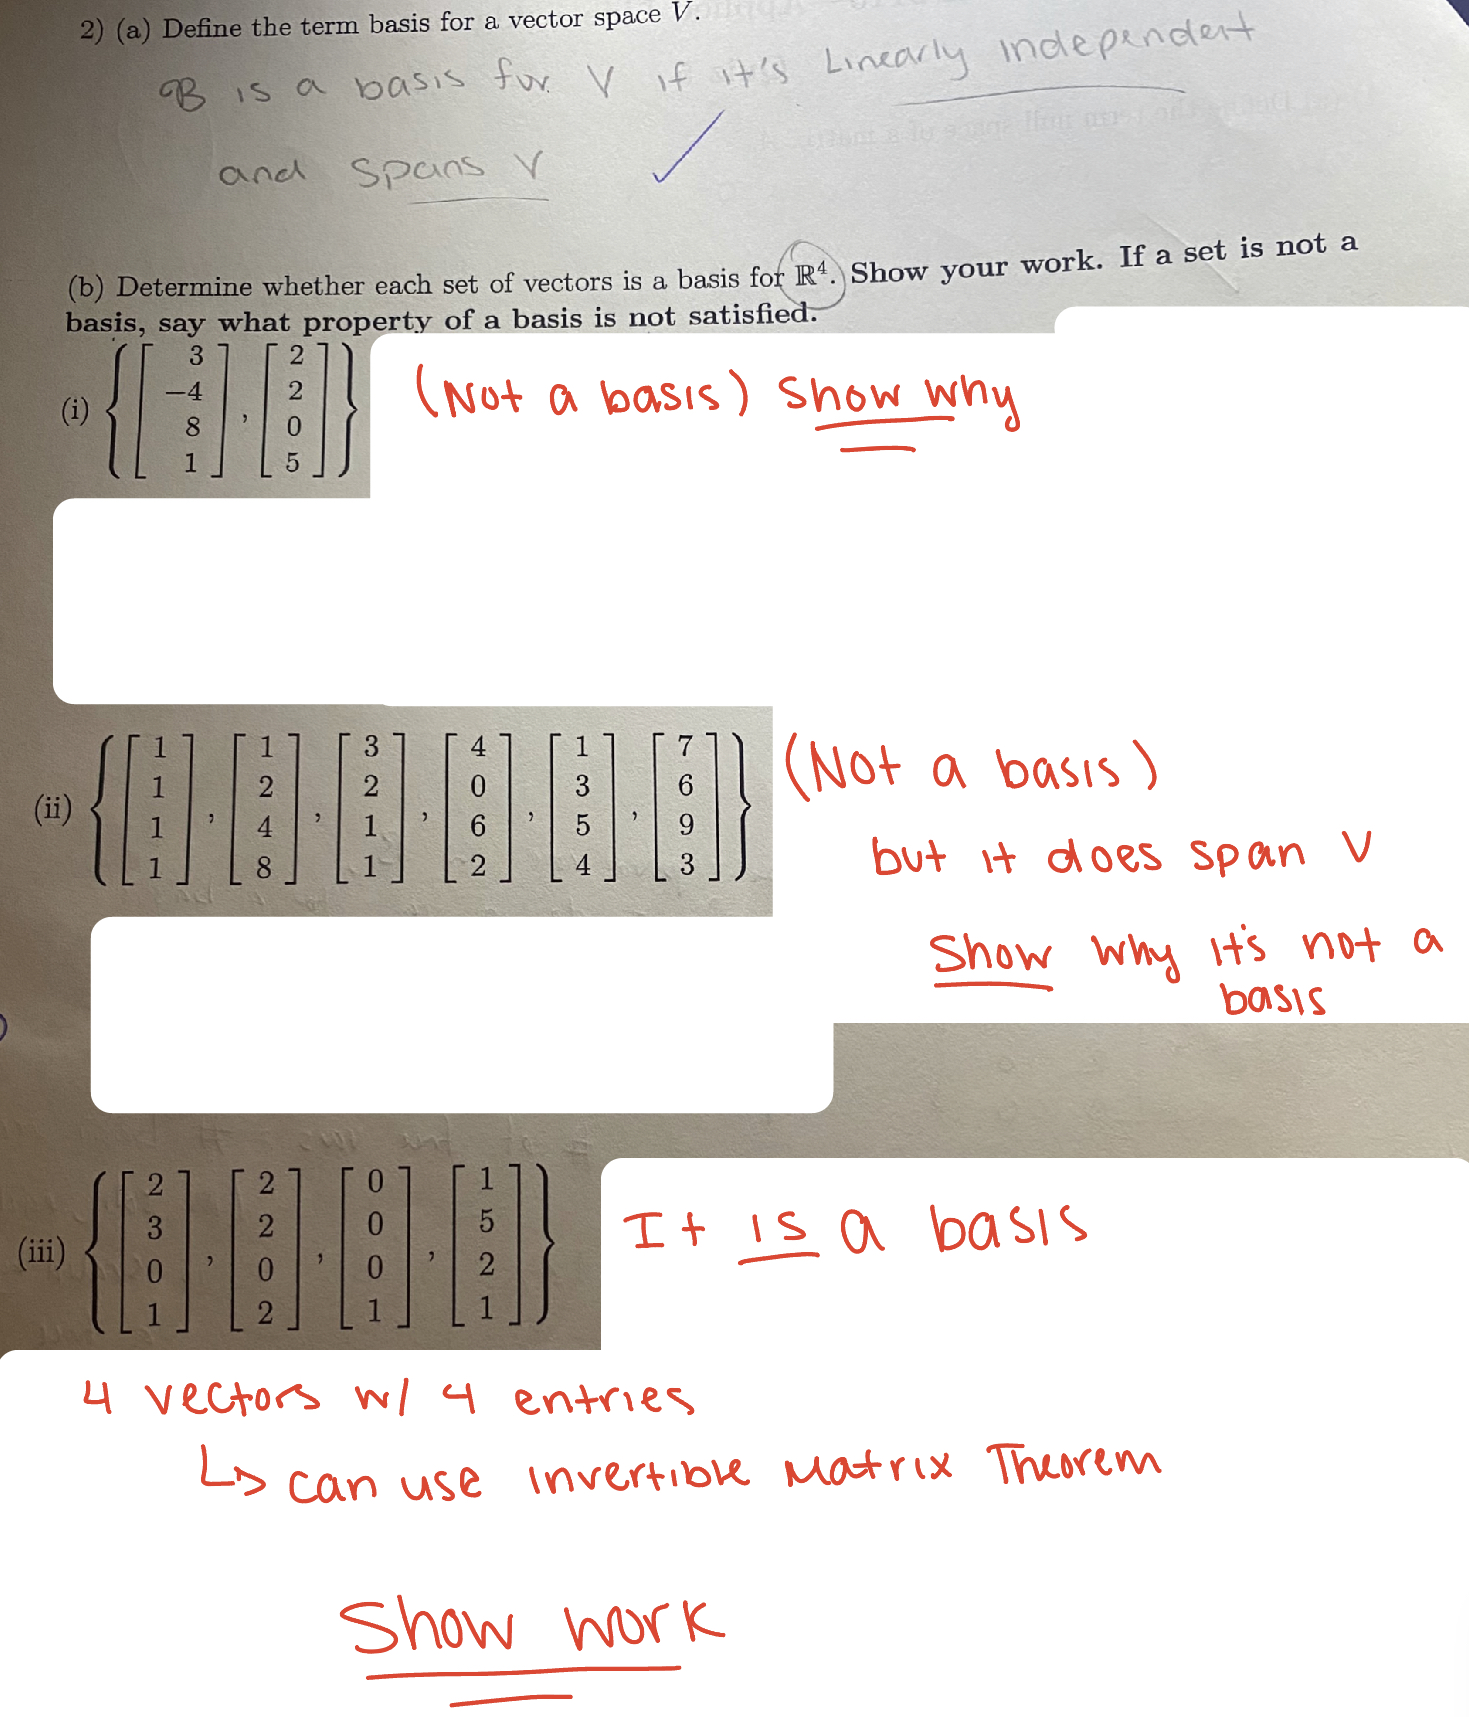 2) (a) Define the term basis for a vector space V.
B is a basis for V if it's Linearly independent
and spans V
(b) Determine whether each set of vectors is a basis for ℝ⁴. Show your work. If a set is not a
basis, say what property of a basis is not satisfied.
(i) { [3 -4 8 1], [2 2 0 5] } (Not a basis) Show why
(ii) { [1 1 1 1], [1 2 4 8], [3 2 1 1], [4 0 6 2], [1 3 5 4], [7 6 9 3] } (Not a basis)
but it does span V
Show why it's not a
basis
(iii) { [2 3 0 1], [2 2 0 2], [0 0 0 1], [1 5 2 1] } It is a basis
4 vectors w/ 4 entries
↳ can use invertible Matrix Theorem
Show work